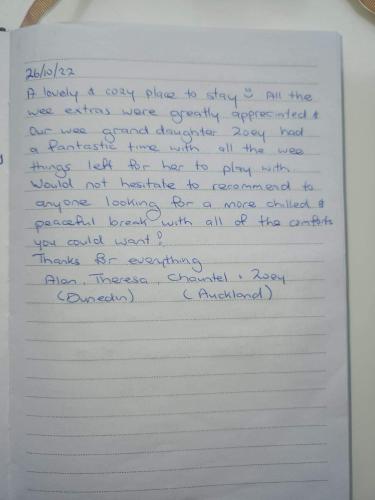 26/10/22
A lovely & cozy place to stay ☺ All the
wee extras were greatly appreciated &
Our wee grand daughter Zoey had
a fantastic time with all the wee
things left for her to play with.
Would not hesitate to recommend to
anyone looking for a more chilled &
peaceful break with all of the comforts
you could want!
Thanks for everything
Alan, Theresa, Chauntel & Zoey
(Dunedin) (Auckland)